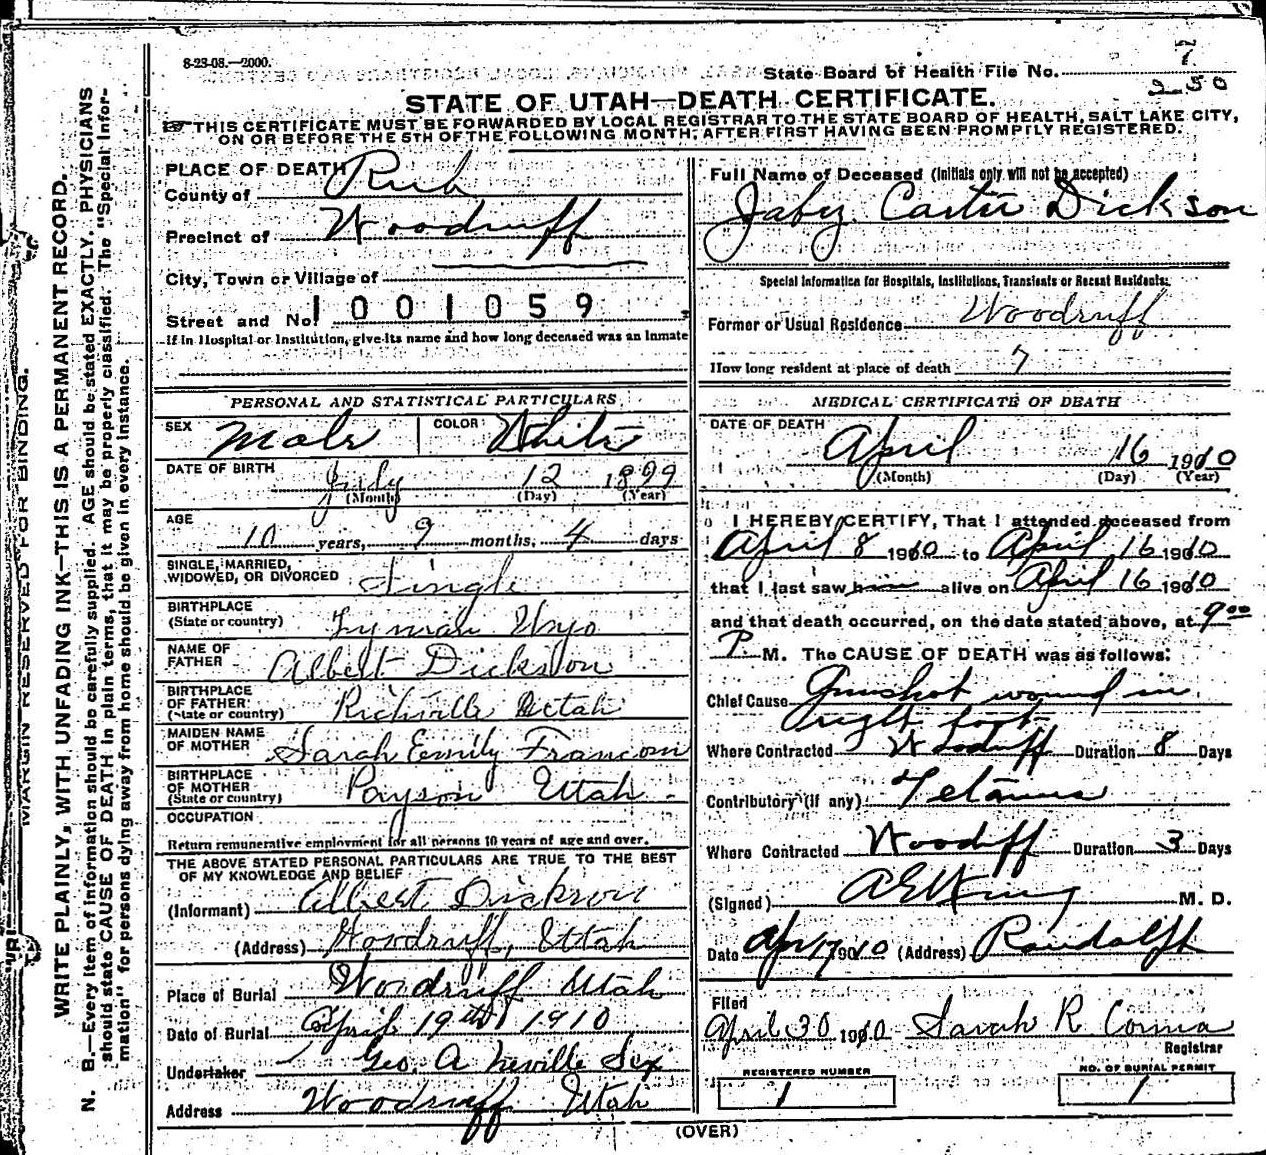 8-23-08.—2000.
State Board of Health File No. 7
250
STATE OF UTAH—DEATH CERTIFICATE.
THIS CERTIFICATE MUST BE FORWARDED BY LOCAL REGISTRAR TO THE STATE BOARD OF HEALTH, SALT LAKE CITY,
ON OR BEFORE THE 5TH OF THE FOLLOWING MONTH, AFTER FIRST HAVING BEEN PROMPTLY REGISTERED.
MARGIN RESERVED FOR BINDING.
WRITE PLAINLY, WITH UNFADING INK—THIS IS A PERMANENT RECORD.
N. B.—Every item of information should be carefully supplied. AGE should be stated EXACTLY. PHYSICIANS
should state CAUSE OF DEATH in plain terms, that it may be properly classified. The "Special Infor-
mation" for persons dying away from home should be given in every instance.
PLACE OF DEATH
County of Rich
Precinct of Woodruff
City, Town or Village of
Street and No. 1001059
If in Hospital or Institution, give its name and how long deceased was an Inmate
PERSONAL AND STATISTICAL PARTICULARS
SEX Male COLOR White
DATE OF BIRTH July 12 1899
(Month) (Day) (Year)
AGE
10 years, 9 months, 4 days
SINGLE, MARRIED,
WIDOWED, OR DIVORCED Single
BIRTHPLACE
(State or country) Lyman Wyo
NAME OF
FATHER Albert Dickson
BIRTHPLACE
OF FATHER
(State or country) Richville Utah
MAIDEN NAME
OF MOTHER Sarah Emily Francom
BIRTHPLACE
OF MOTHER
(State or country) Payson Utah
OCCUPATION
Return remunerative employment for all persons 10 years of age and over.
THE ABOVE STATED PERSONAL PARTICULARS ARE TRUE TO THE BEST
OF MY KNOWLEDGE AND BELIEF
(Informant) Albert Dickson
(Address) Woodruff, Utah
Place of Burial Woodruff Utah
Date of Burial April 19th 1910
Undertaker Geo. A Neville Sex
Address Woodruff Utah
Full Name of Deceased (Initials only will not be accepted)
Jabez Carter Dickson
Special Information for Hospitals, Institutions, Transients or Recent Residents:
Former or Usual Residence Woodruff
How long resident at place of death 7
MEDICAL CERTIFICATE OF DEATH
DATE OF DEATH
April 16 1910
(Month) (Day) (Year)
I HEREBY CERTIFY, That I attended deceased from
April 8 1910 to April 16 1910
that I last saw him alive on April 16 1910
and that death occurred, on the date stated above, at 9 00
P. M. The CAUSE OF DEATH was as follows:
Chief Cause Gunshot wound in
right foot
Where Contracted Woodruff Duration 8 Days
Contributory (if any) Tetanus
Where Contracted Woodruff Duration 3 Days
(Signed) M. D.
Date Apr 17 1910 (Address) Randolph
Filed
April 30 1910 Sarah R
Registrar
REGISTERED NUMBER
1
NO. OF BURIAL PERMIT
1
(OVER)